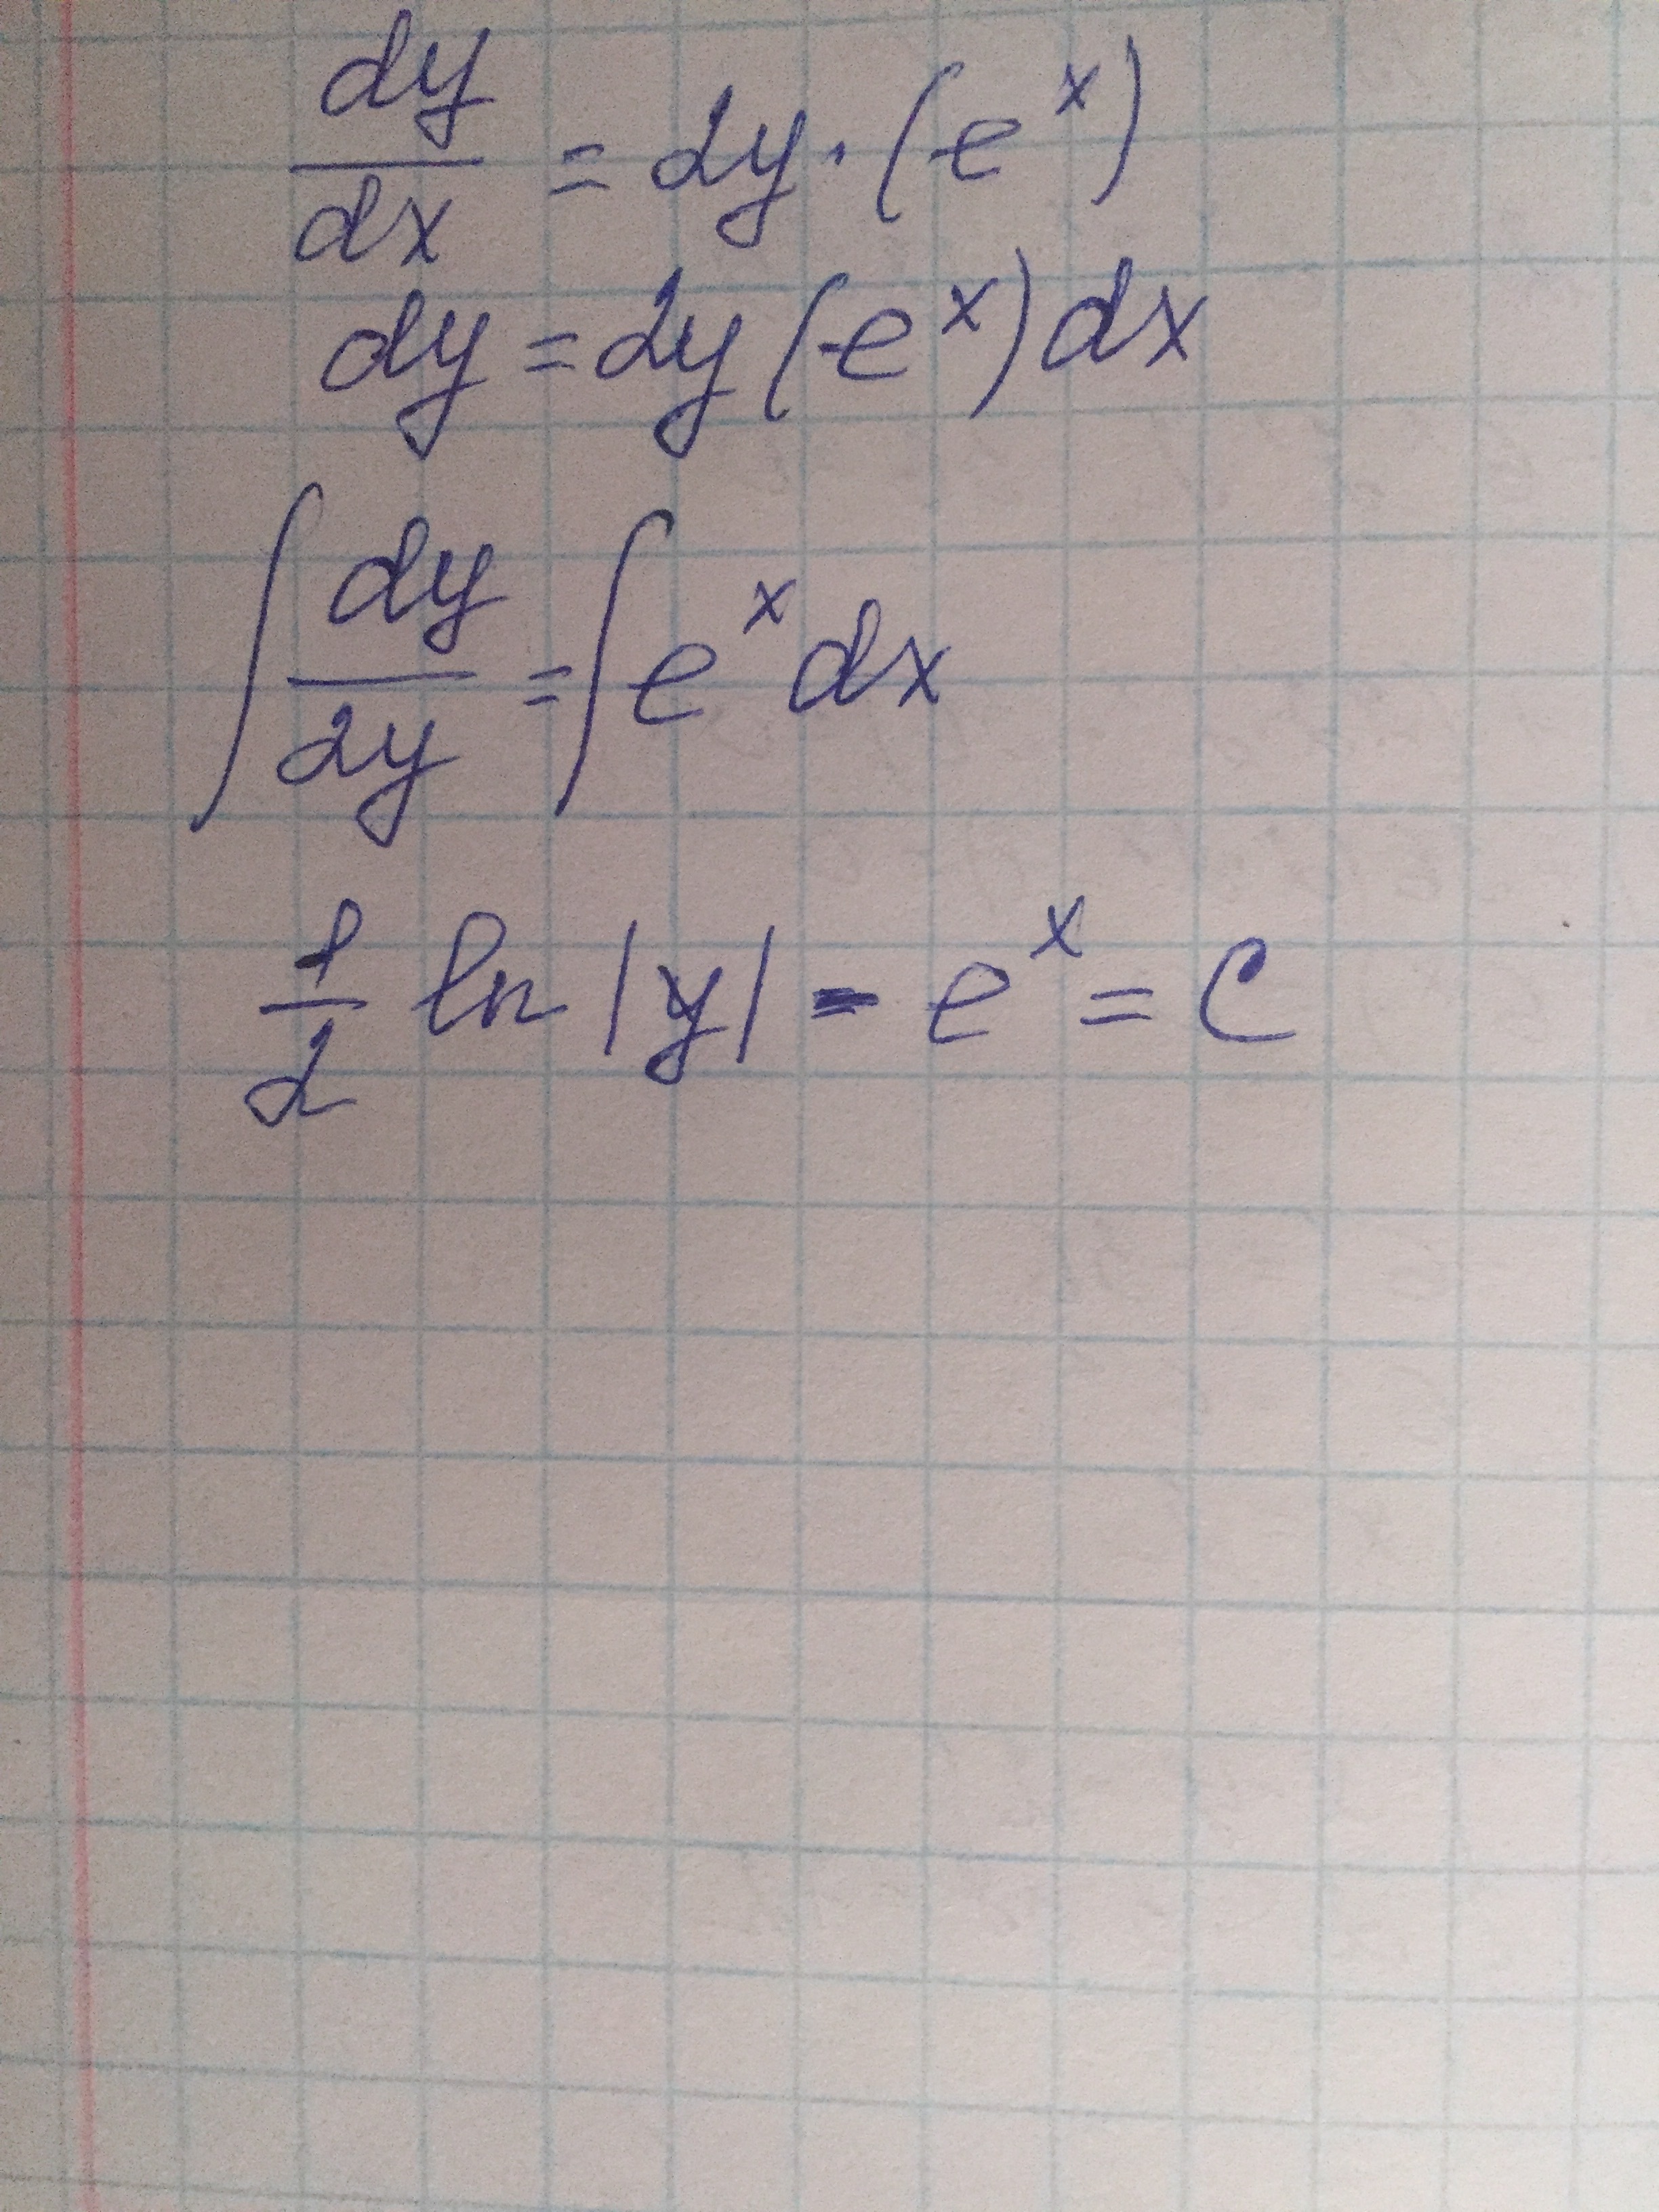 dy/dx = 2y · (e^x)
dy = 2y (e^x) dx
∫ dy/2y = ∫ e^x dx
1/2 ln |y| - e^x = C